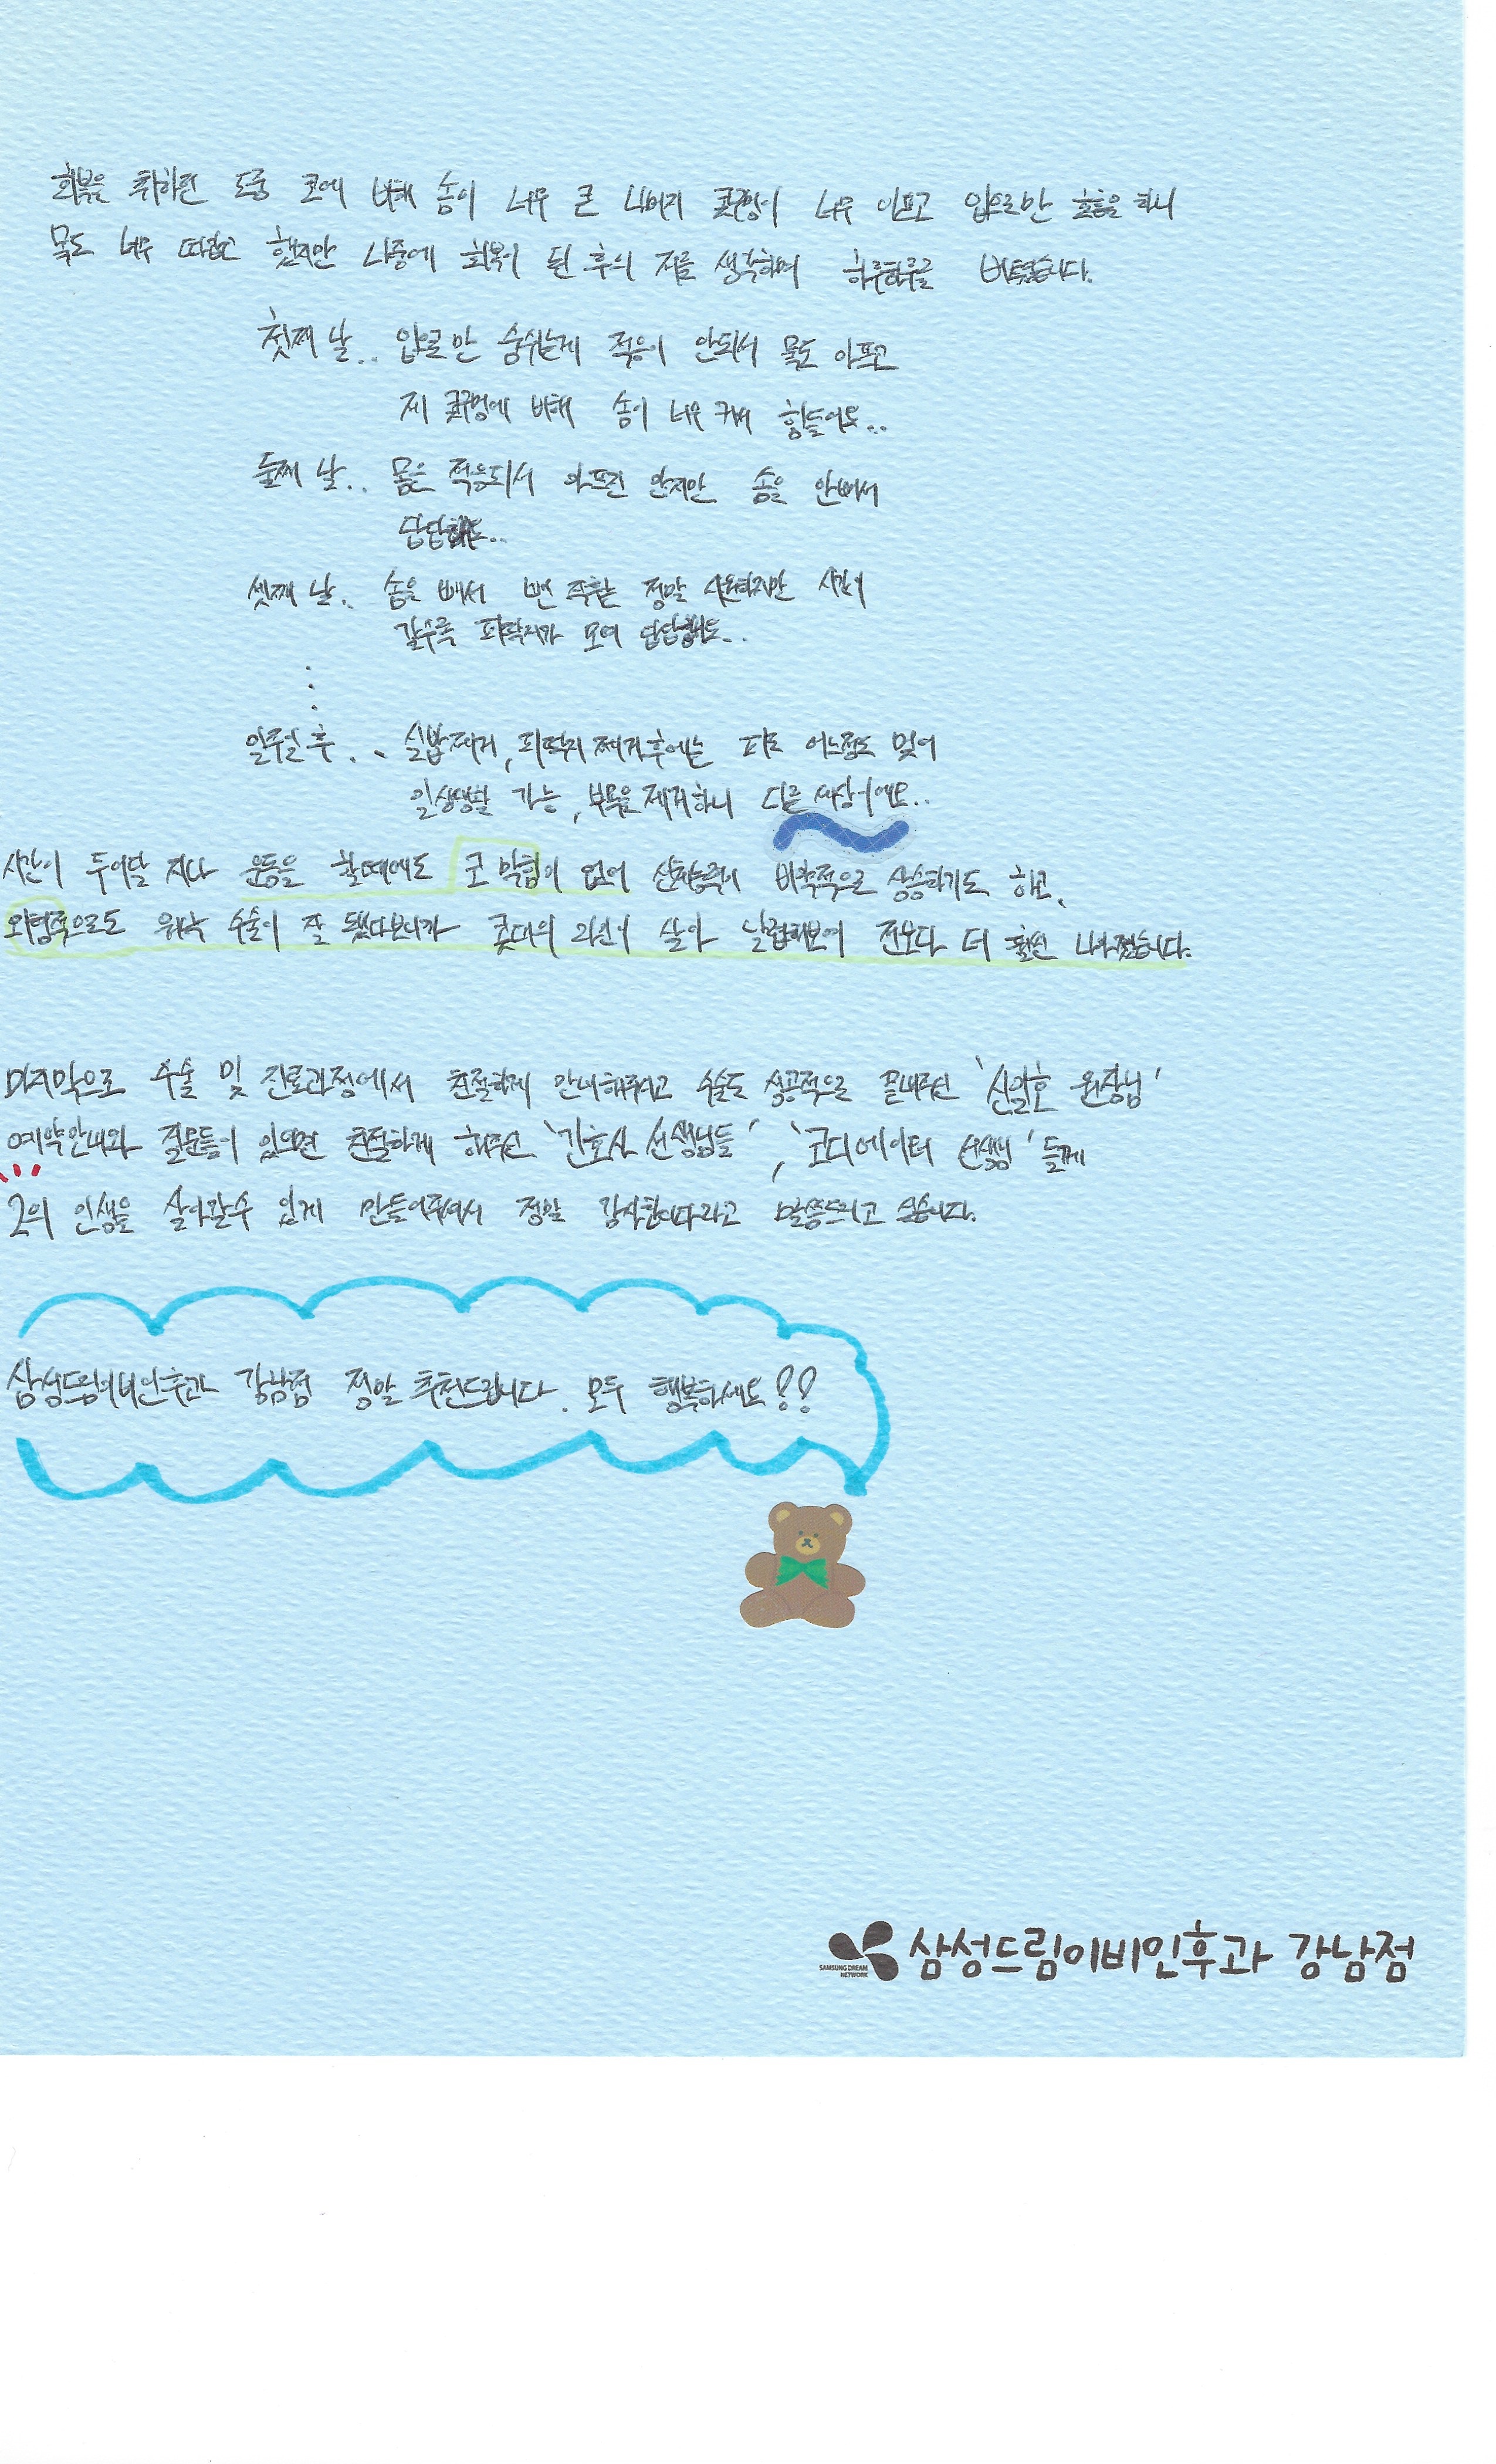 회복을 취하던 도중 코에 비해 솜이 너무 큰 나머지 콧구멍이 너무 아프고 입으로만 호흡을 하니
목도 너무 따갑고 했지만 나중에 회복이 된 후의 저를 생각하며 하루하루를 버텼습니다.
첫째 날.. 입으로만 숨쉬는게 적응이 안되서 목도 아프고
제 콧구멍에 비해 솜이 너무 커서 힘들어요..
둘째 날.. 몸은 적응되서 아프진 않지만 솜을 안빼서
답답해요..
셋째 날.. 솜을 빼서 뺀 직후는 정말 시원하지만 시간이
갈수록 피딱지가 모여 답답해요..
일주일 후.. 실밥제거, 피딱지 제거후에는 피도 어느정도 멎어
일상생활 가능, 부목을 제거하니 다른 세상이에요..
시간이 두어달 지나 운동을 할때에도 코 막힘이 없어 신체능력이 비약적으로 상승하기도 하고,
외형적으로도 워낙 수술이 잘 됐다보니까 콧대의 라인이 살아 날렵해보여 전보다 더 훨씬 나아졌습니다.
마지막으로 수술 및 진료과정에서 친절하게 안내해주시고 수술도 성공적으로 끝내주신 '신일호 원장님'
예약안내와 질문들이 있으면 친절하게 해주신 '간호사 선생님들', '코디네이터 선생님'들께
2의 인생을 살아갈수 있게 만들어주셔서 정말 감사합니다라고 말씀드리고 싶습니다.
삼성드림이비인후과 강남점 정말 추천드립니다. 모두 행복하세요!!
SAMSUNG DREAM NETWORK 삼성드림이비인후과 강남점